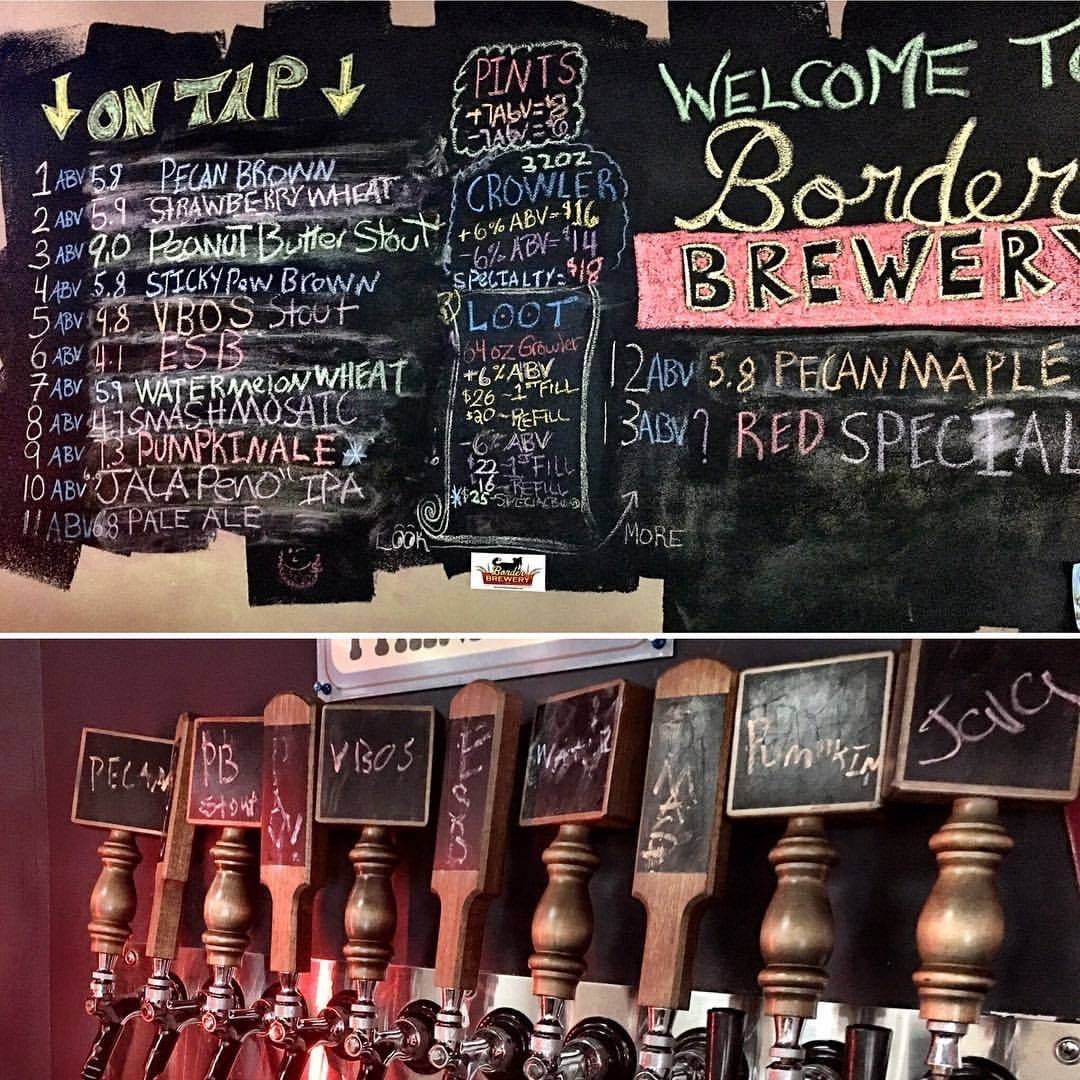 ON TAP
1 ABV 5.8 PECAN BROWN
2 ABV 5.9 STRAWBERRY WHEAT
3 ABV 9.0 PEANUT Butter Stout
4 ABV 5.8 STICKY PAW BROWN
5 ABV 9.8 VBOS Stout
6 ABV 4.1 ESB
7 ABV 5.9 WATERMELON WHEAT
8 ABV 4.7 SMASH MOSAIC
9 ABV 7.3 PUMPKIN ALE *
10 ABV "JALAPENO" IPA
11 ABV 6.8 PALE ALE
LOOK
PINTS
+7ABV=$8
-7ABV=$6
32OZ
CROWLER
+6% ABV=$16
-6% ABV=$14
SPECIALTY=$18
LOOT
64oz Growler
+6% ABV
$26 ~1ST FILL
$20 ~REFILL
-6% ABV
$22 ~1ST FILL
$16 ~REFILL
*$25
Border
BREWERY
WELCOME TO
Border
BREWERY
12 ABV 5.8 PECAN MAPLE
13 ABV ? RED SPECIAL
MORE
PECAN
PB
Stout
PAW
VBOS
SMASH
PUMPKIN